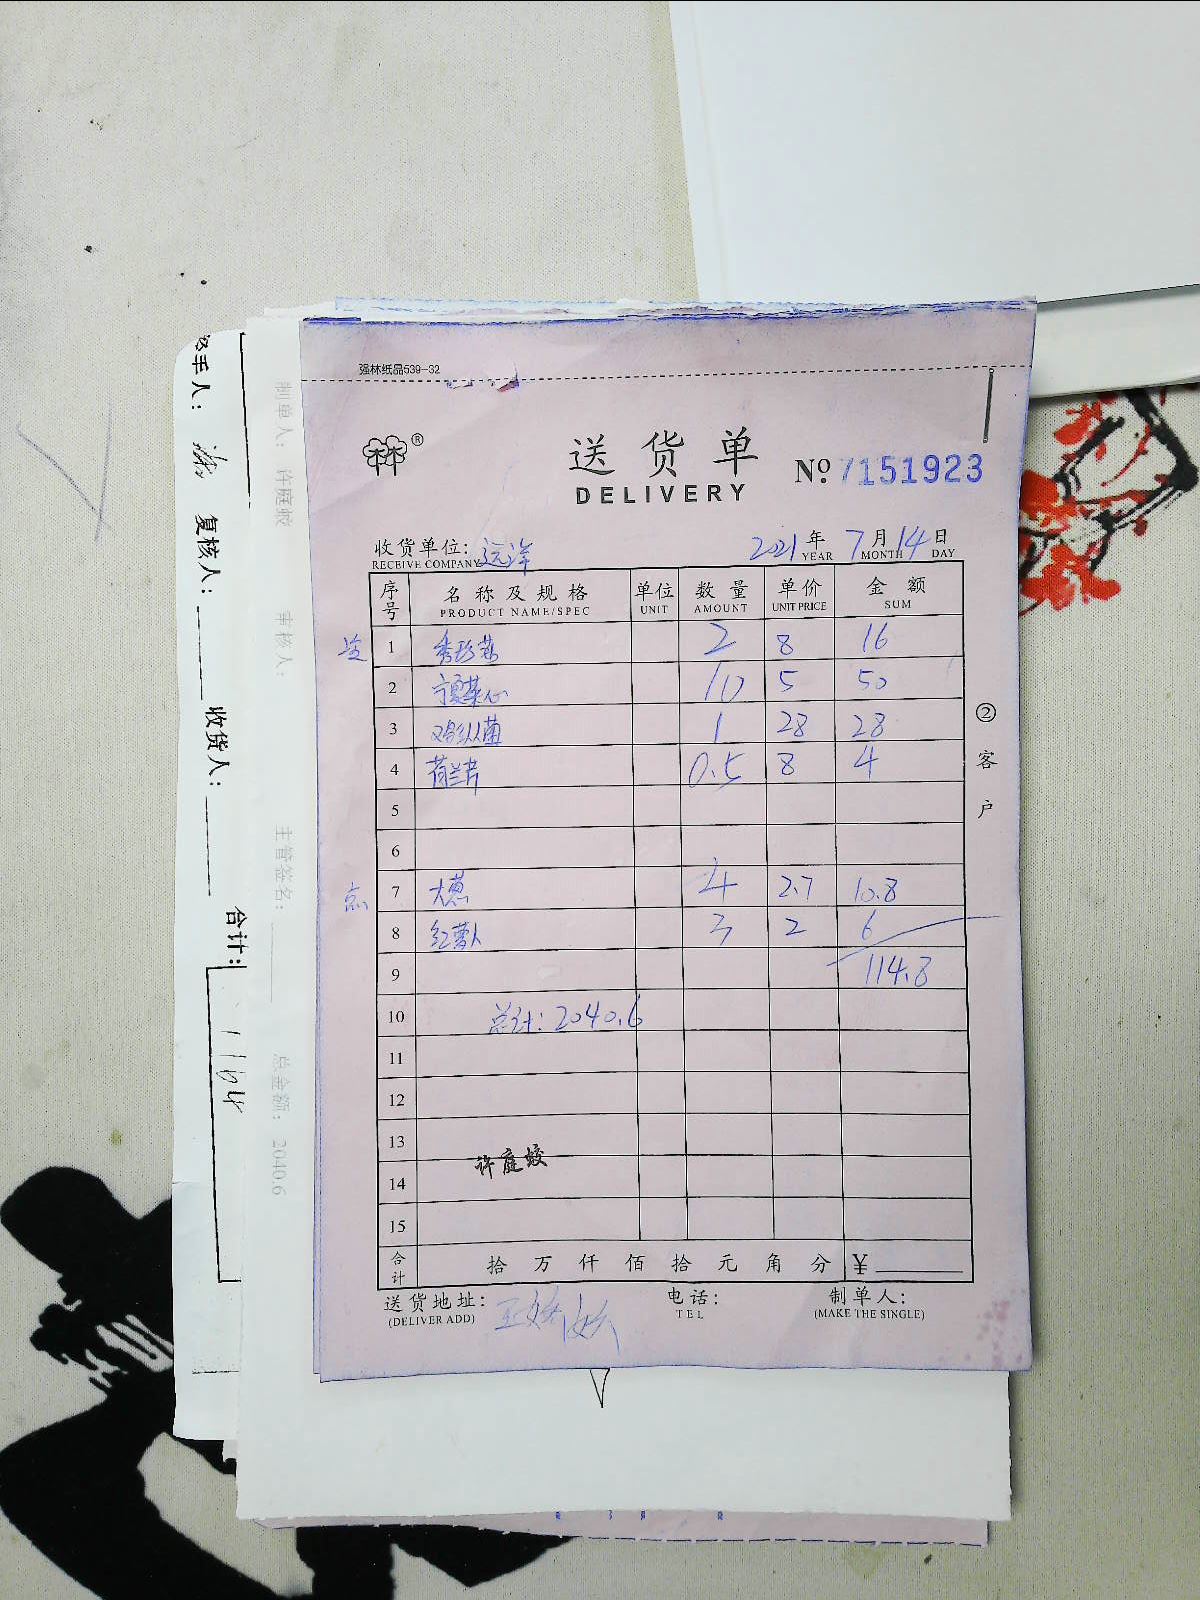 强林纸品539-32
林®
送货单
DELIVERY
№ 7151923
收货单位: 远洋 2021 年 7 月 14 日
RECEIVE COMPANY YEAR MONTH DAY
序号 名称及规格 单位 数量 单价 金额
PRODUCT NAME/SPEC UNIT AMOUNT UNIT PRICE SUM
1 秀珍菇 2 8 16
2 宁夏菜心 10 5 50
3 鸡纵菌 1 28 28
4 荷兰芹 0.5 8 4
5
6
点 7 大葱 4 2.7 10.8
8 红萝卜 3 2 6
9 114.8
10 总计: 2040.6
11
12
13
许庭蛟
14
15
合计 拾 万 仟 佰 拾 元 角 分 ¥
送货地址: 电话: 制单人:
(DELIVER ADD) TEL (MAKE THE SINGLE)
②客户
制单人: 许庭蛟 审核人: 主管签名: 总金额: 2040.6
手人: 复核人: 收货人:
合计: